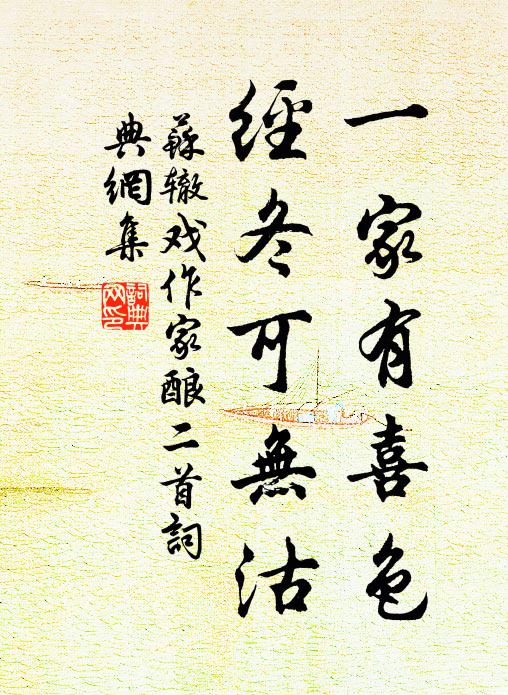 一家有喜色
經冬可無沽
蘇辙戏作家酿二首詞
典網集
詞典
网印